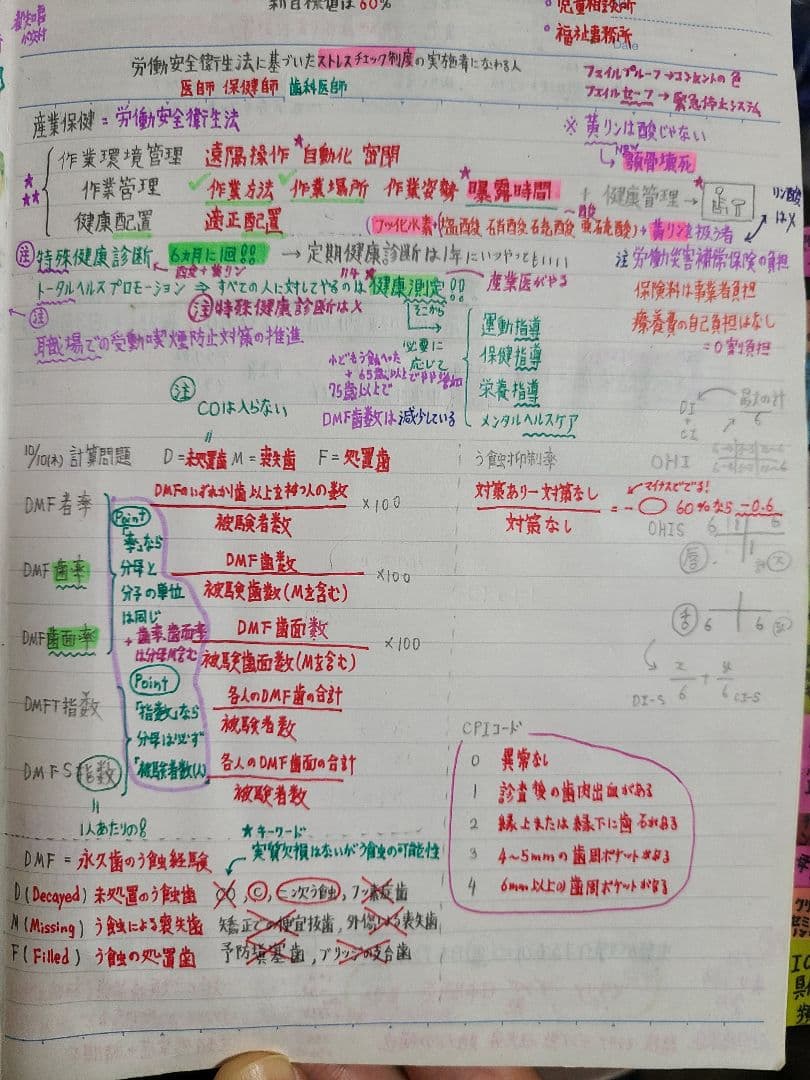 新目標値は60%
児童相談所
福祉事務所
Date
労働安全衛生法に基づいたストレスチェック制度の実施者になれる人
医師 保健師 歯科医師
フェイルプルーフ→コンセントの色
フェイルセーフ→緊急停止システム
産業保健=労働安全衛生法
※黄リンは酸じゃない
顎骨壊死
作業環境管理 遠隔操作 自動化 密閉
作業管理 作業方法 作業場所 作業姿勢 曝露時間 + 健康管理→
リン酸は×
健康配置 適正配置
(フッ化水素・塩酸 硝酸 硫酸 亜硫酸)+黄リンを扱う者
注 特殊健康診断 6カ月に1回!! → 定期健康診断は1年にいつやってもいい
酸+黄リン
注 労働災害補償保険の負担
保険料は事業者負担
療養費の自己負担はなし
=0割負担
トータルヘルスプロモーション ⇒ すべての人に対してやるのは健康測定!!
産業医がやる
注 特殊健康診断は×
注
職場での受動喫煙防止対策の推進
そこから
必要に
応じて
運動指導
保健指導
栄養指導
メンタルヘルスケア
子どもう食へった
+65歳以上でやや増加
75歳以上で
DMF歯数は減少している
注
COは入らない
DI
+
CI
最大の計
6
10/10(木) 計算問題 D=未処置歯 M=喪失歯 F=処置歯
う蝕抑制率
OHI
DMF者率
DMFのいずれか1歯以上を持つ人の数
被験者数
×100
対策あり-対策なし
対策なし
マイナスででる!
60%なら -0.6
OHIS
6 1 6
1
唇
DMF歯率
DMF歯数
被験歯数(Mを含む)
×100
Point
「率」なら
分母と
分子の単位
は同じ
+歯率、歯面率
は分母M含む
DMF歯面率
DMF歯面数
被験歯面数(Mを含む)
×100
舌
6 6
DI-S
CI-S
DMFT指数
各人のDMF歯の合計
被験者数
Point
「指数」なら
分母は必ず
「被験者数(人)」
DMFS指数
各人のDMF歯面の合計
被験者数
1人あたりの!
CPIコード
0 異常なし
1 診査後の歯肉出血がある
2 縁上または縁下に歯石がある
3 4~5mmの歯周ポケットがある
4 6mm以上の歯周ポケットがある
★キーワード
DMF=永久歯のう蝕経験
実質欠損はないがう蝕の可能性
D(Decayed) 未処置のう蝕歯 CO, C, 二次う蝕, フッ素症歯
M(Missing) う蝕による喪失歯 矯正での便宜抜歯, 外傷による喪失歯
F(Filled) う蝕の処置歯 予防填塞歯, ブリッジの支台歯